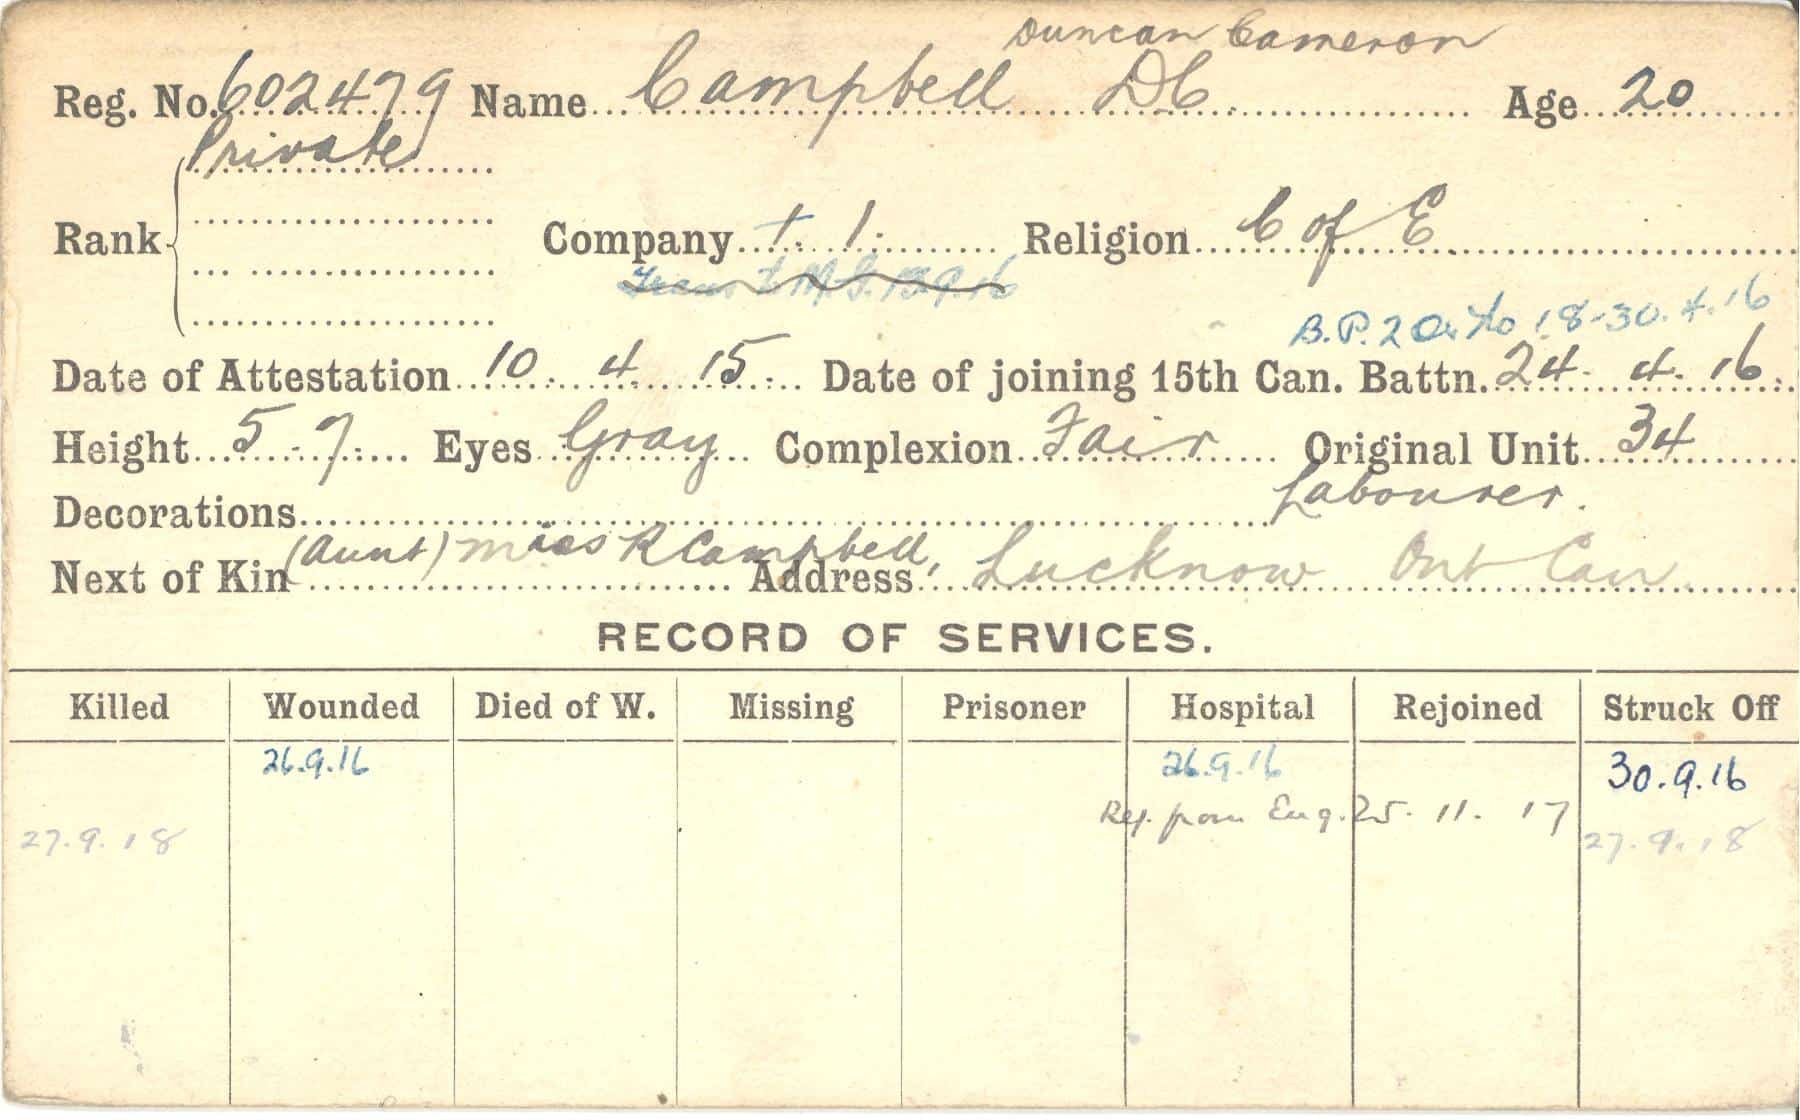 Duncan Cameron
Reg. No. 602479 Name Campbell D.C. Age 20
Private
Rank Company 1. 1. Religion C of E
Trans to M.G. 13.9.16
B.P. 2 Or. No 18-30.4.16
Date of Attestation 10. 4. 15. Date of joining 15th Can. Battn. 24. 4. 16.
Height 5.7. Eyes Gray Complexion Fair Original Unit 34
Decorations Labourer.
Next of Kin (Aunt) Miss R Campbell, Address Lucknow Ont Can.
RECORD OF SERVICES.
Killed Wounded Died of W. Missing Prisoner Hospital Rejoined Struck Off
26.9.16 26.9.16 30.9.16
Rej. from Eng. 25. 11. 17
27.9.18 27.9.18